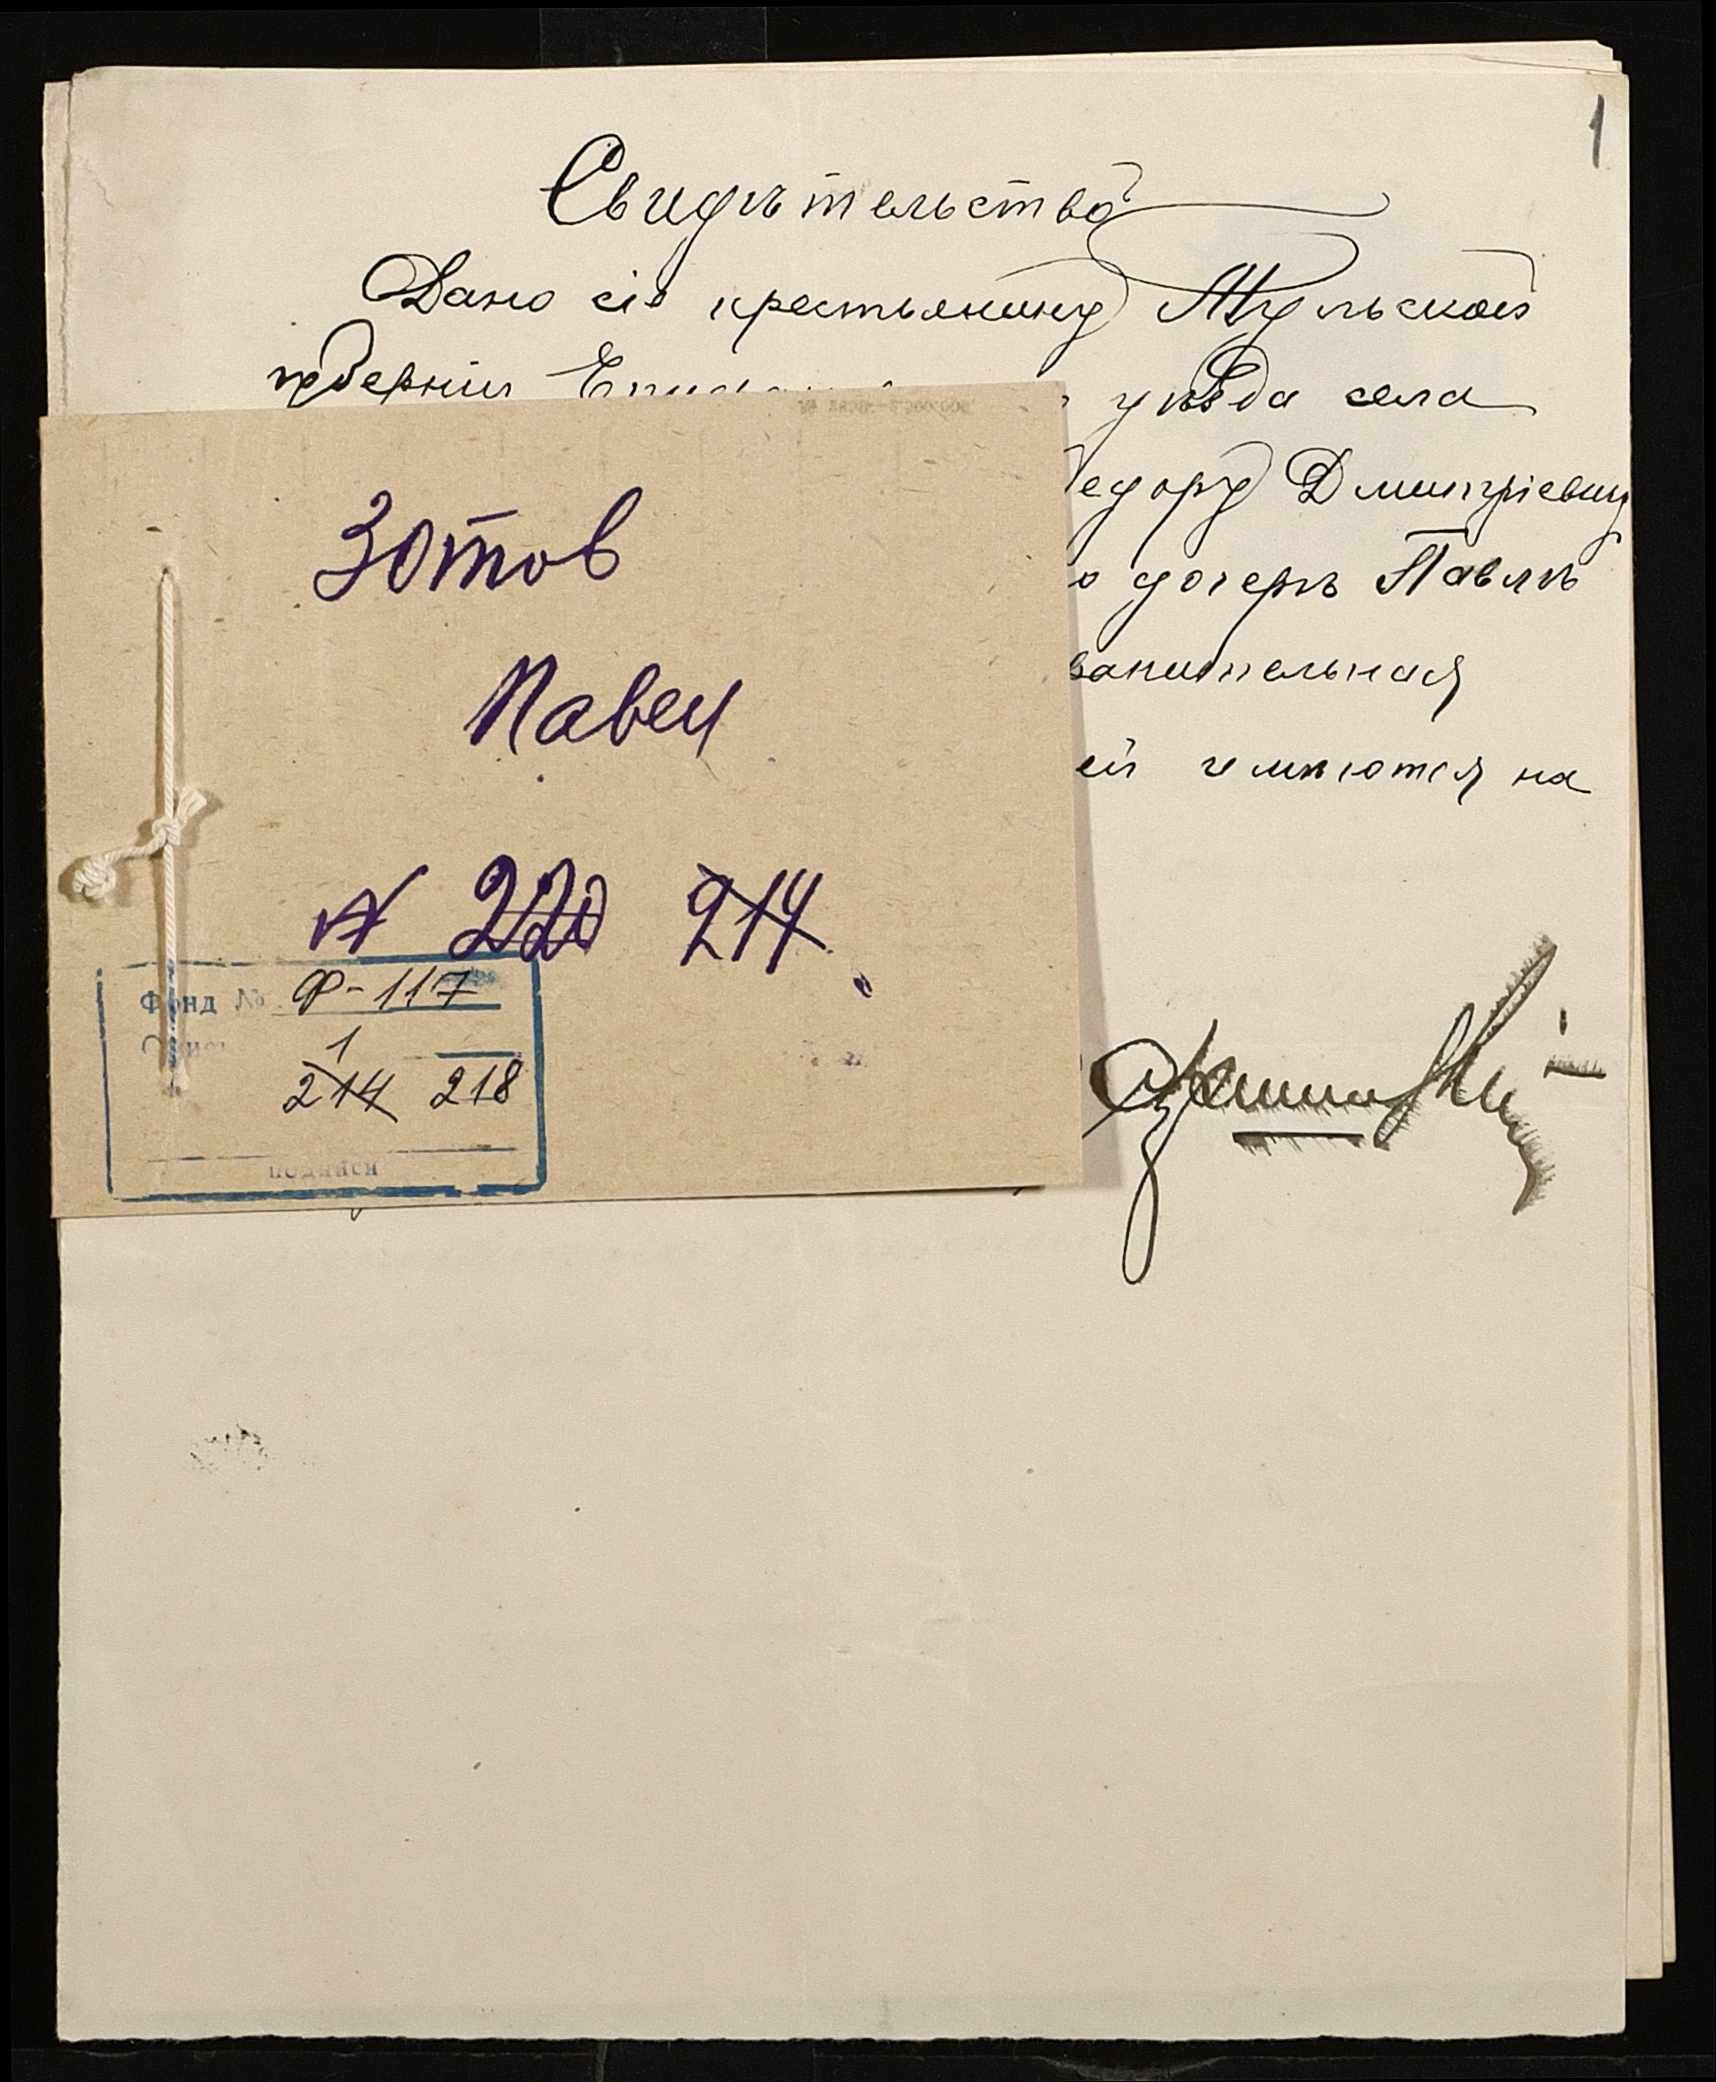 1
Свидѣтельство
Дано сіе крестьянину Тульской
губерніи уѣзда села
Дмитріевичу
дочерѣ Павлѣ
ей имѣются на
Зотов
Павел
N 220 214
Фонд № Ф-117
1
214 218
подписи